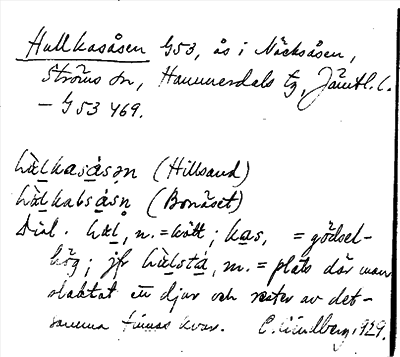 Hullkasåsen G53, ås i Näcksåsen,
Ströms sn, Hammerdals tg, Jämtl. l.
— G 53 469.
hùlkasåsən (Hillsand)
hùlkabsåsn̥ (Bonäset)
Dial. hul, n. = kött; kas, = gödsel-
hög; jfr hùlstå, m. = plats där man
slaktat ett djur och rester av det-
samma finnas kvar. C. Lindberg, 1929.